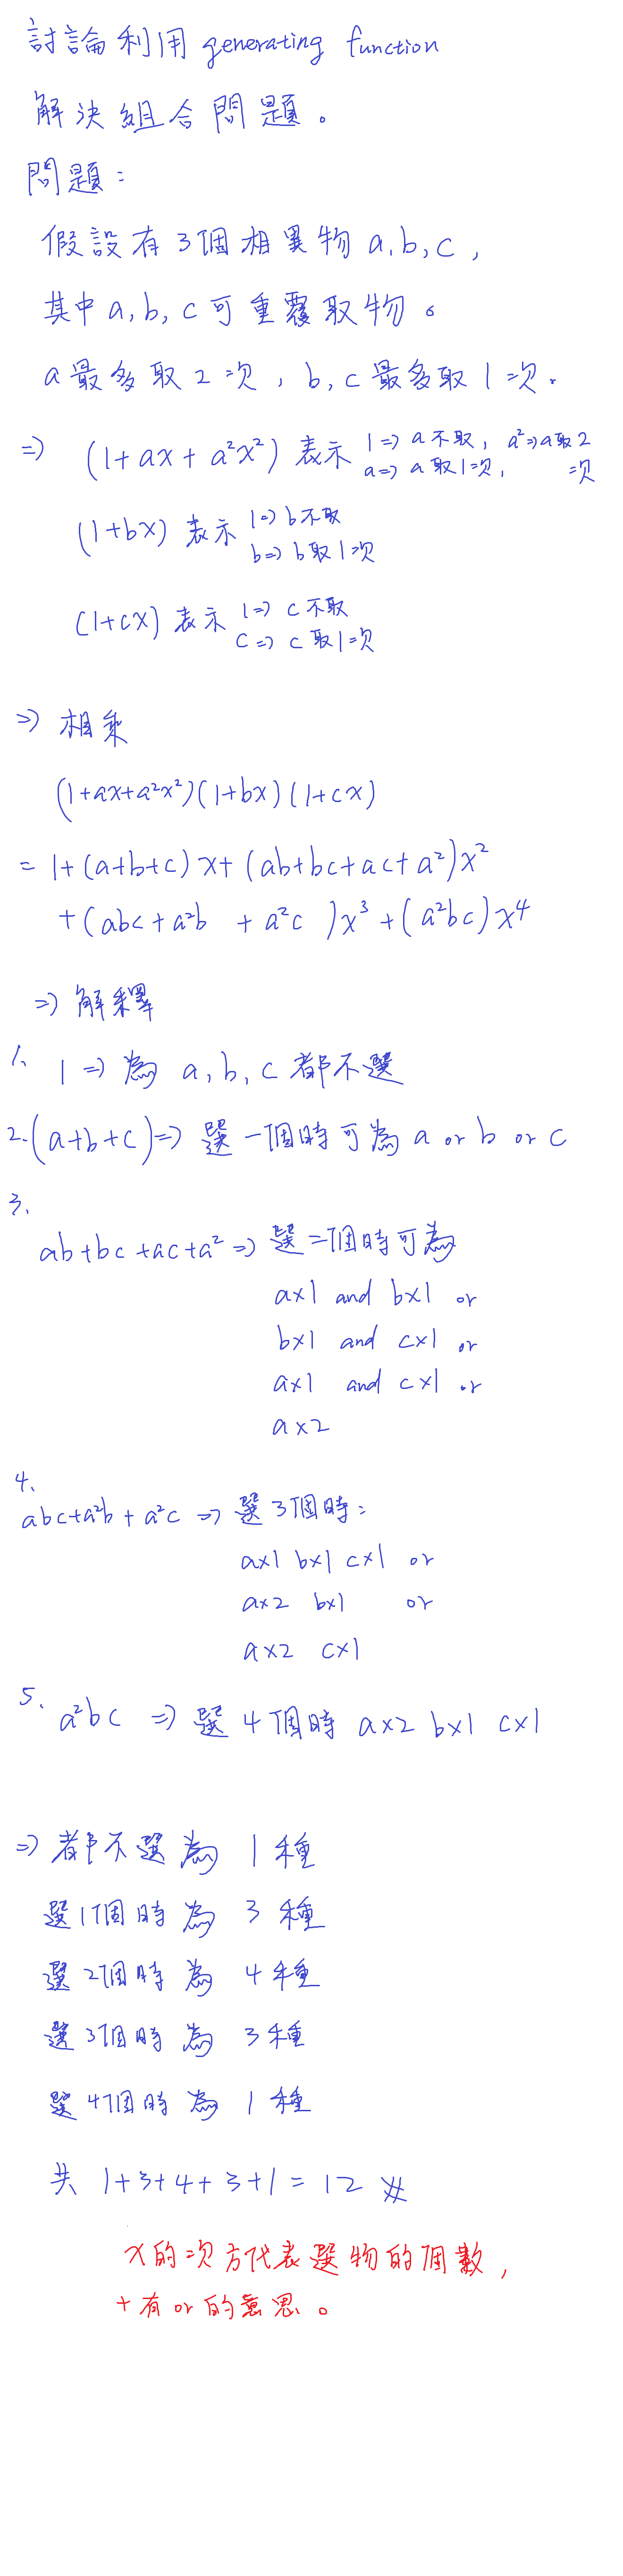 討論利用 generating function
解決組合問題。
問題:
假設有3個相異物 a,b,c,
其中 a,b,c 可重覆取物。
a最多取2次, b,c最多取1次.
=> (1+ax+a²x²) 表示 1=> a不取, a²=>a取2
a=> a取1次, 次
(1+bx) 表示 1=> b不取
b=> b取1次
(1+cx) 表示 1=> c不取
c=> c取1次
=> 相乘
(1+ax+a²x²)(1+bx)(1+cx)
= 1+(a+b+c)x+(ab+bc+ac+a²)x²
+(abc+a²b + a²c )x³+(a²bc)x⁴
=> 解釋
1. 1 => 為 a,b,c 都不選
2.(a+b+c)=> 選一個時可為 a or b or c
3.
ab+bc+ac+a² => 選二個時可為
a×1 and b×1 or
b×1 and c×1 or
a×1 and c×1 or
a×2
4.
abc+a²b+a²c => 選3個時:
a×1 b×1 c×1 or
a×2 b×1 or
a×2 c×1
5. a²bc => 選4個時 a×2 b×1 c×1
=> 都不選為 1種
選1個時為 3種
選2個時為 4種
選3個時為 3種
選4個時為 1種
共 1+3+4+3+1=12 #
x的次方代表選物的個數,
+有or的意思。